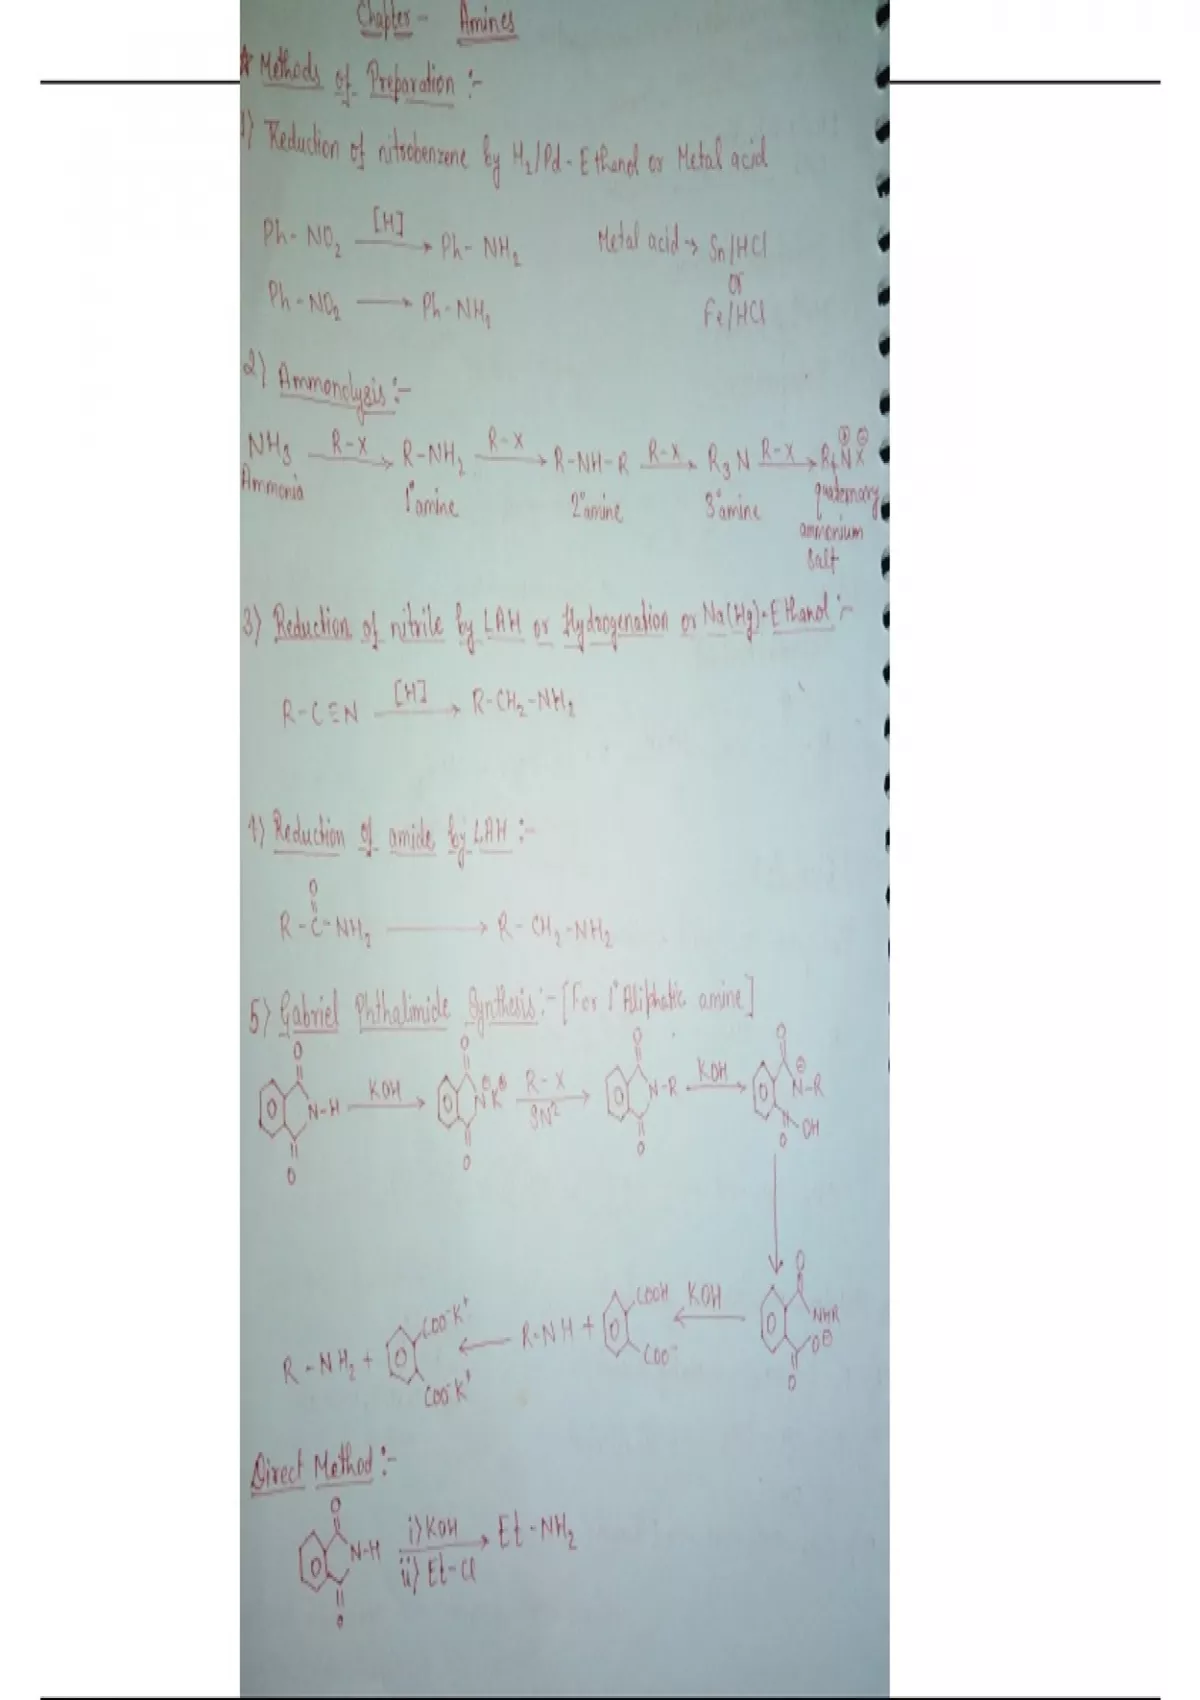 Chapter - Amines
* Methods of Preparation :-
1) Reduction of nitrobenzene by H2/Pd - Ethanol or Metal acid
Ph - NO2 [H] → Ph - NH2 Metal acid → Sn/HCl
or
Ph - NO2 → Ph - NH2 Fe/HCl
2) Ammonolysis :-
NH3 R-X → R-NH2 R-X → R-NH-R R-X → R3N R-X → R4N⊕ X⊖
Ammonia 1° amine 2° amine 3° amine quaternary
ammonium
salt
3) Reduction of nitrile by LAH or Hydrogenation or Na(Hg)-Ethanol :-
R-C≡N [H] → R-CH2-NH2
4) Reduction of amide by LAH :-
O
R-C-NH2 → R-CH2-NH2
5) Gabriel Phthalimide Synthesis :- [For 1° Aliphatic amine]
O O O O
N-H KOH → N⊖ K⊕ R-X → N-R KOH → N⊖-R
SN2
OH
O O O O
O
R-NH2 + COO-K+ ← R-NH + COOH KOH ← NHR
COO-K+ COO- O⊖
O
Direct Method :-
O
N-H i) KOH → Et-NH2
ii) Et-Cl
O